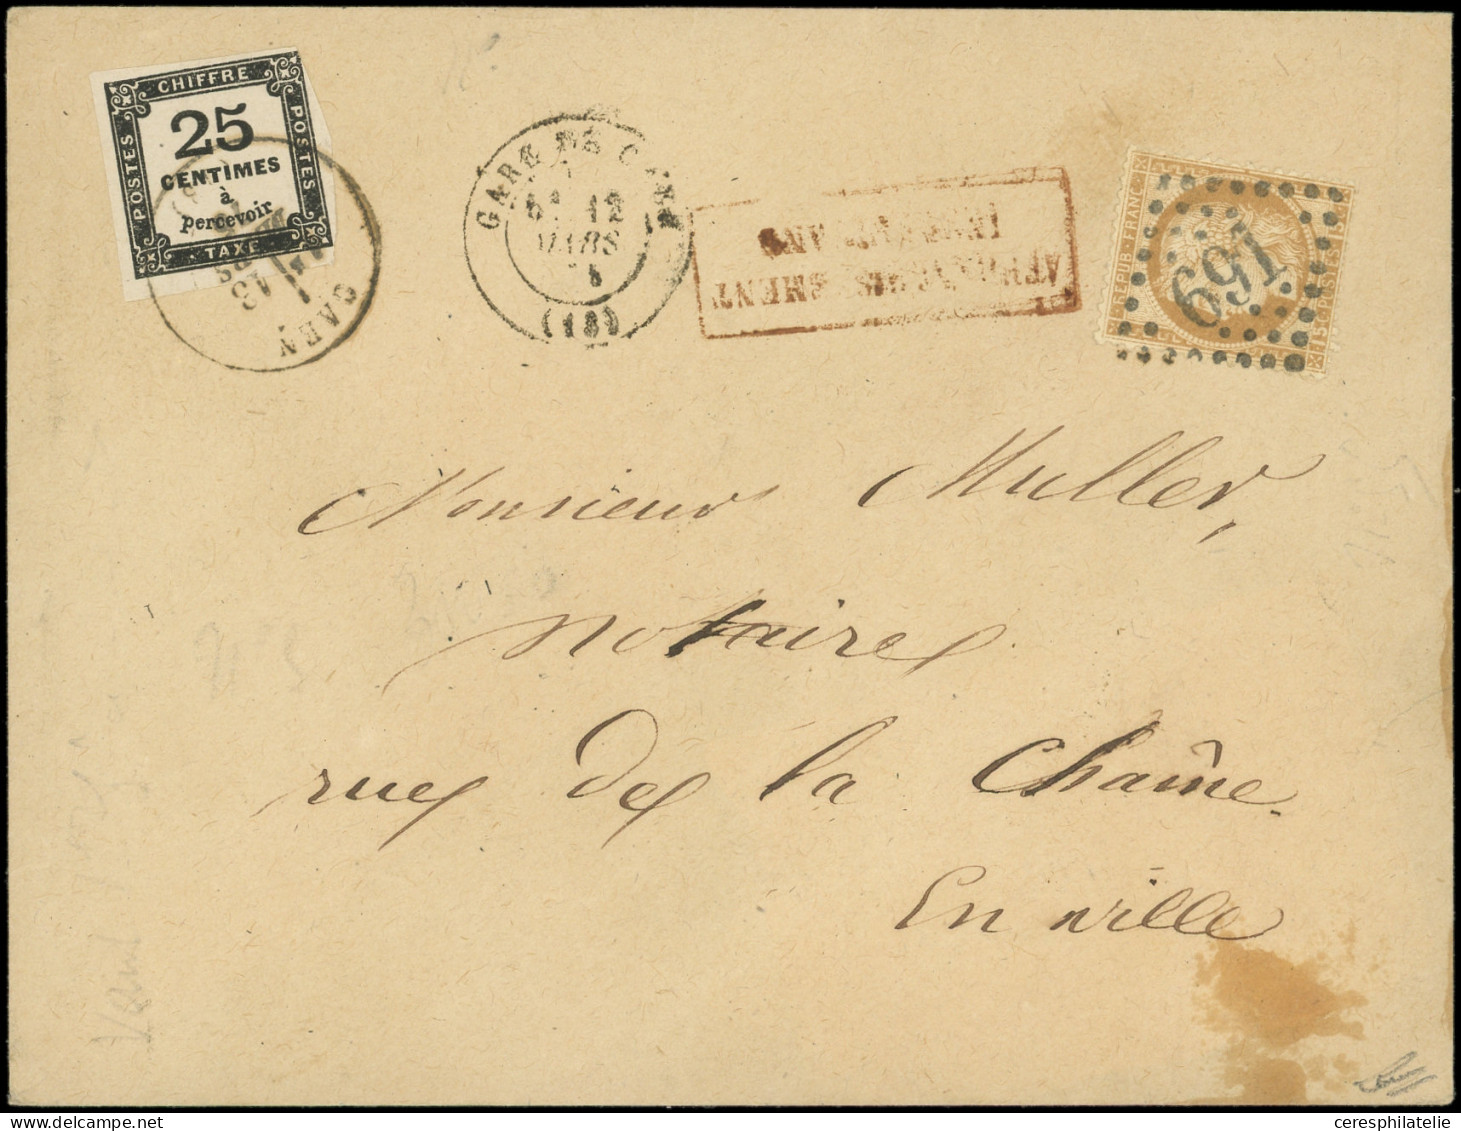 CHIFFRE
25
CENTIMES
à
percevoir
TAXE
POSTES
POSTES
CAEN
13
GARE DE CAEN
12
MARS
(13)
AFFRANCHISSEMENT
INSUFFISANT
REPUB·FRANC
15 c. POSTES 15 c.
691
Monsieur Muller,
notaire
rue de la Chaîne
En ville
ceresphilatelie